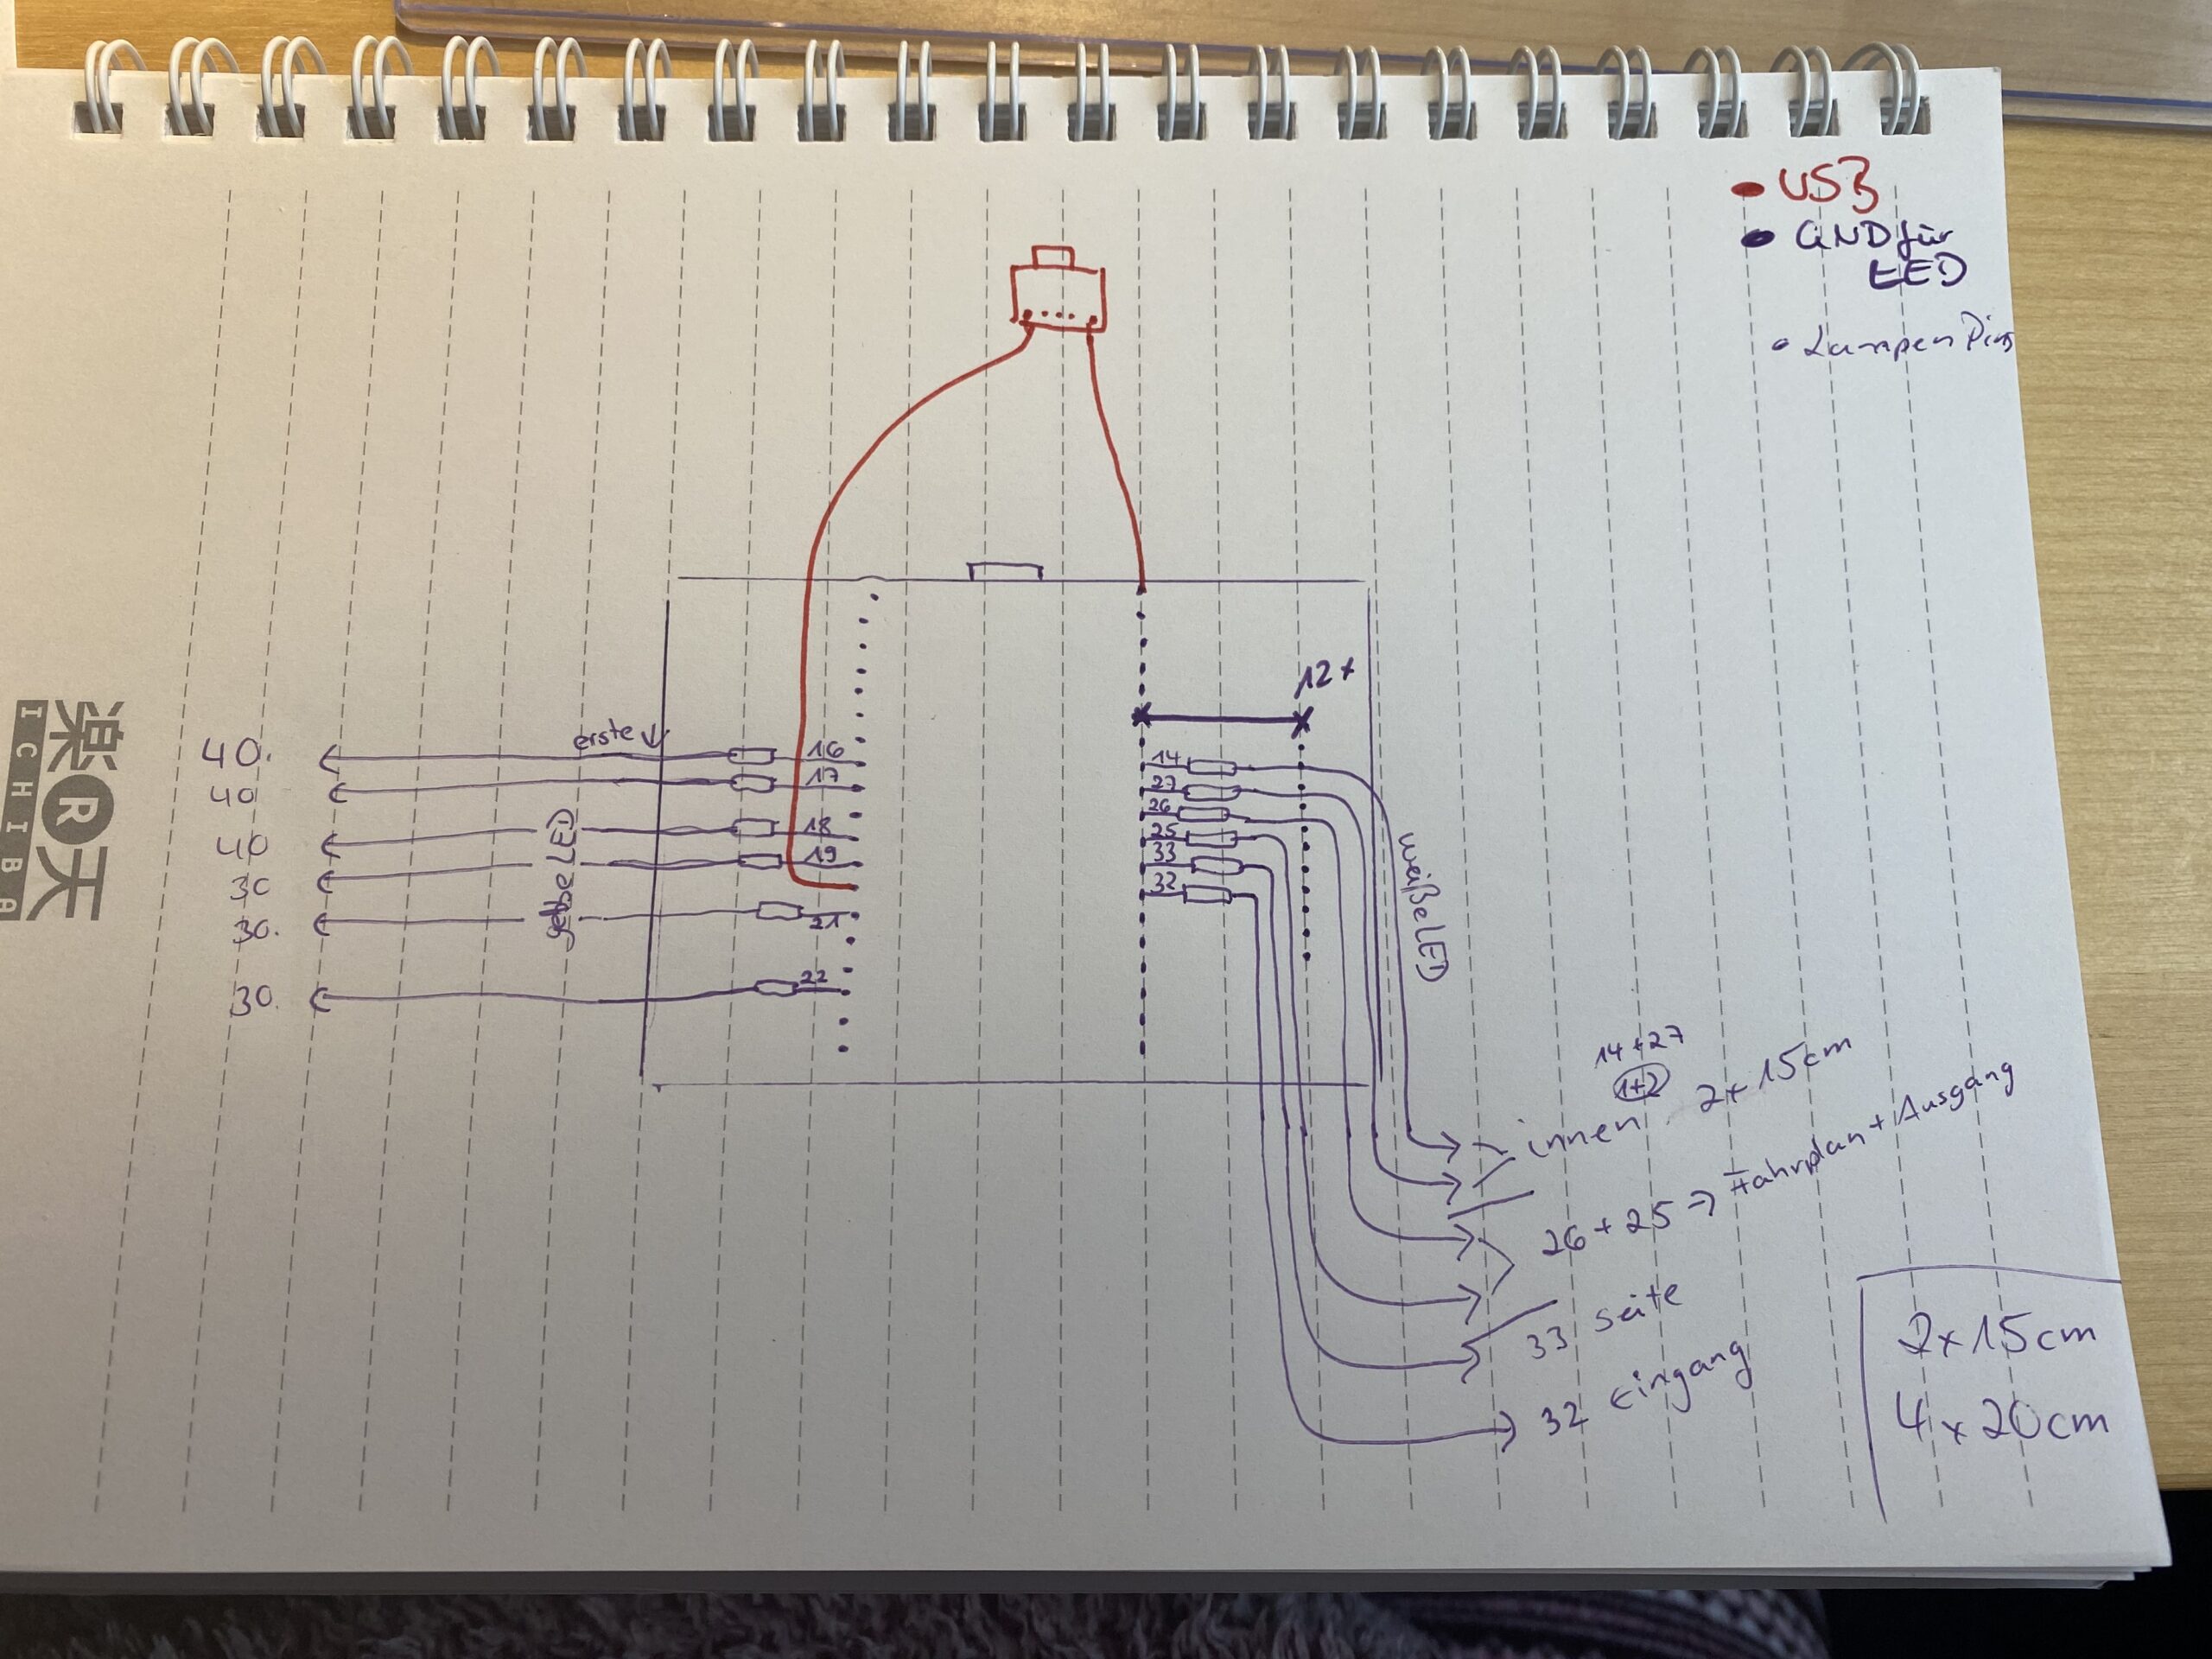 • USB
• GND für
LED
• Lampen Pins
12x
erste ↓
40.
16
40
17
40
18
30
19
30.
21
30.
22
gelbe LED
14
27
26
25
33
32
weiße LED
14+27
1+2
innen 2x 15cm
26+25 => Fahrplan + Ausgang
33 Seite
32 Eingang
2x15cm
4x20cm
楽R天
ICHIBA